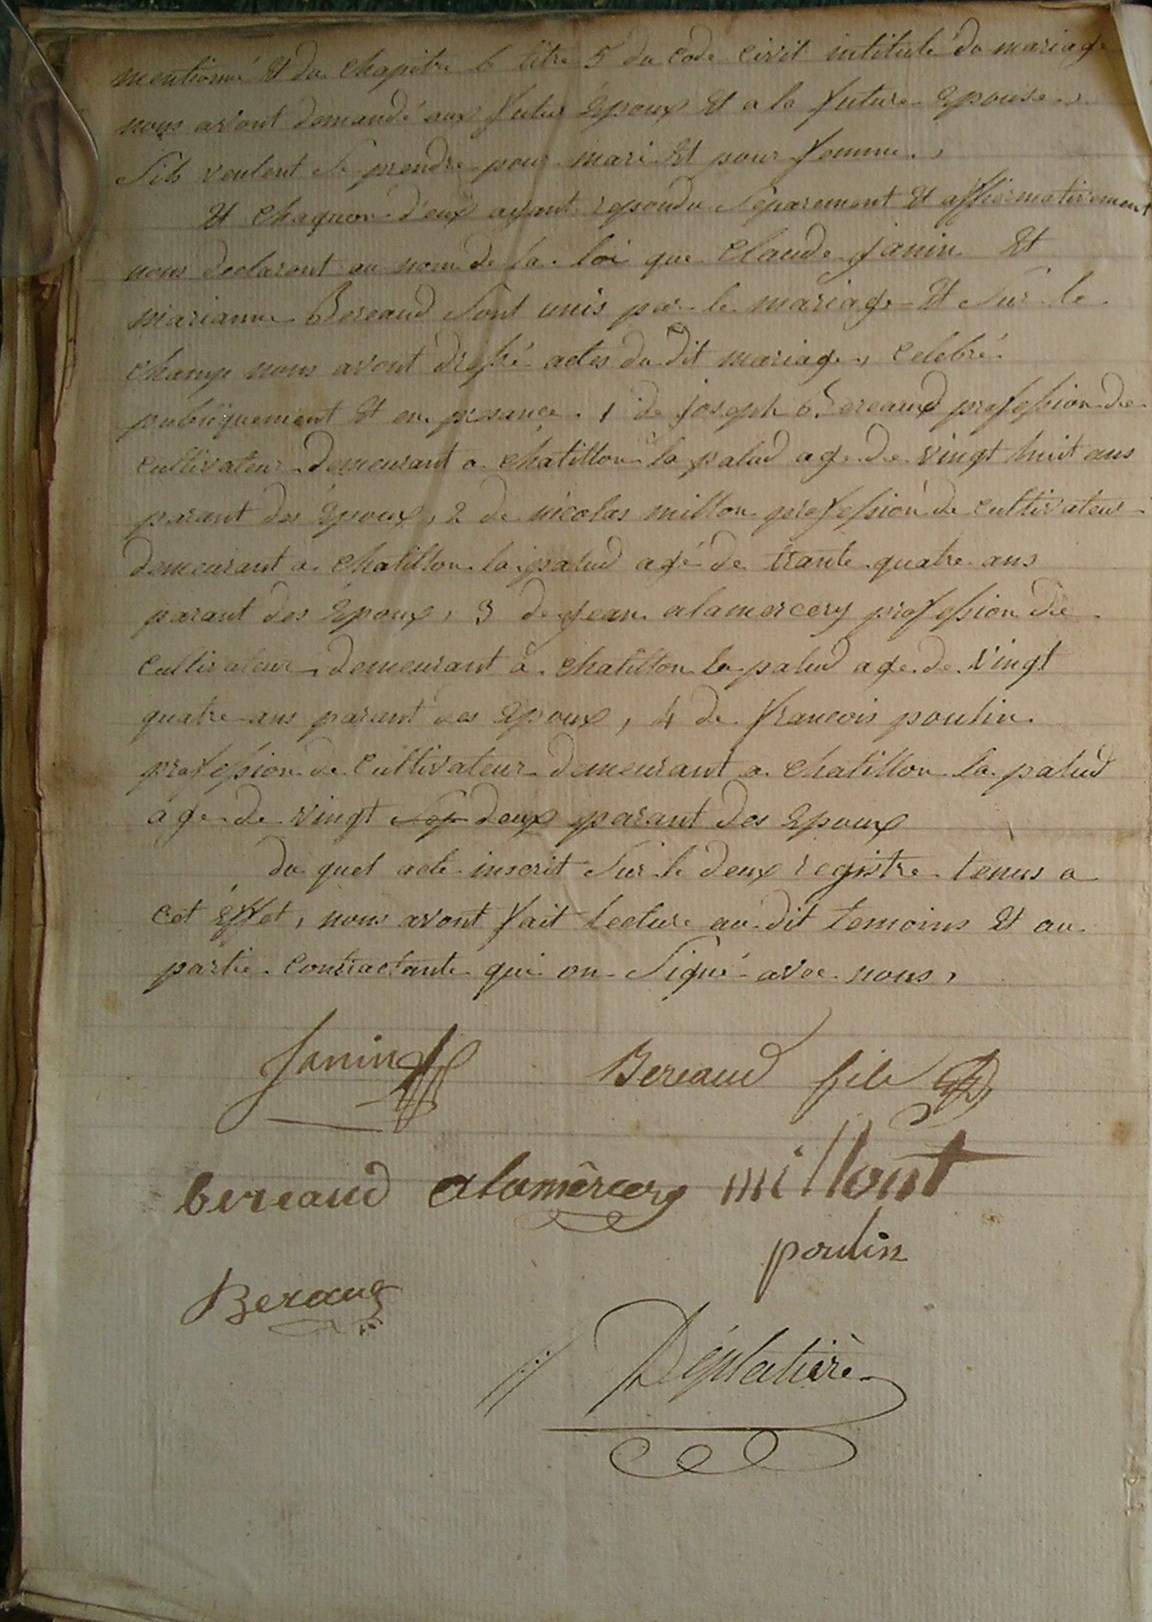 mentionné et du chapitre 6 titre 5 du code civil intitulé du mariage
nous avont demandé aux futur Epoux Et a la future Epouse,
Sils veulent Se prendre pour mari Et pour femme,
Et chaqucun d'eux ayant repondu Séparement Et affirmativement
nous declaront au nom de la loi que Claude janin Et
marianne Bereaud Sont unis par le mariage Et Sur le
champ nous avont dressé actes du dit mariage, celebré
publiquement Et en presance, 1 de joseph bereaud profession de
cultivateur demeurant a chatillon la palud agé de vingt huit ans
parant des Epoux, 2 de nicolas millon profession de cultivateur
demeurant a chatillon la palud agé de trante quatre ans
parant des Epoux, 3 de jean alamercery profession de
cultivateur demeurant a chatillon la palud age de vingt
quatre ans parant des Epoux, 4 de francois poulin
profession de cultivateur demeurant a chatillon la palud
age de vingt deux parant des Epoux
du quel acte inscrit Sur le deux registre tenus a
cet Effet, nous avont fait lecture au dit temoins Et au
partie contractante qui on Signé avec nous,
Janin Bereaud fils
bereaud alamêrcery millont
poulin
Beraud
Déplatière